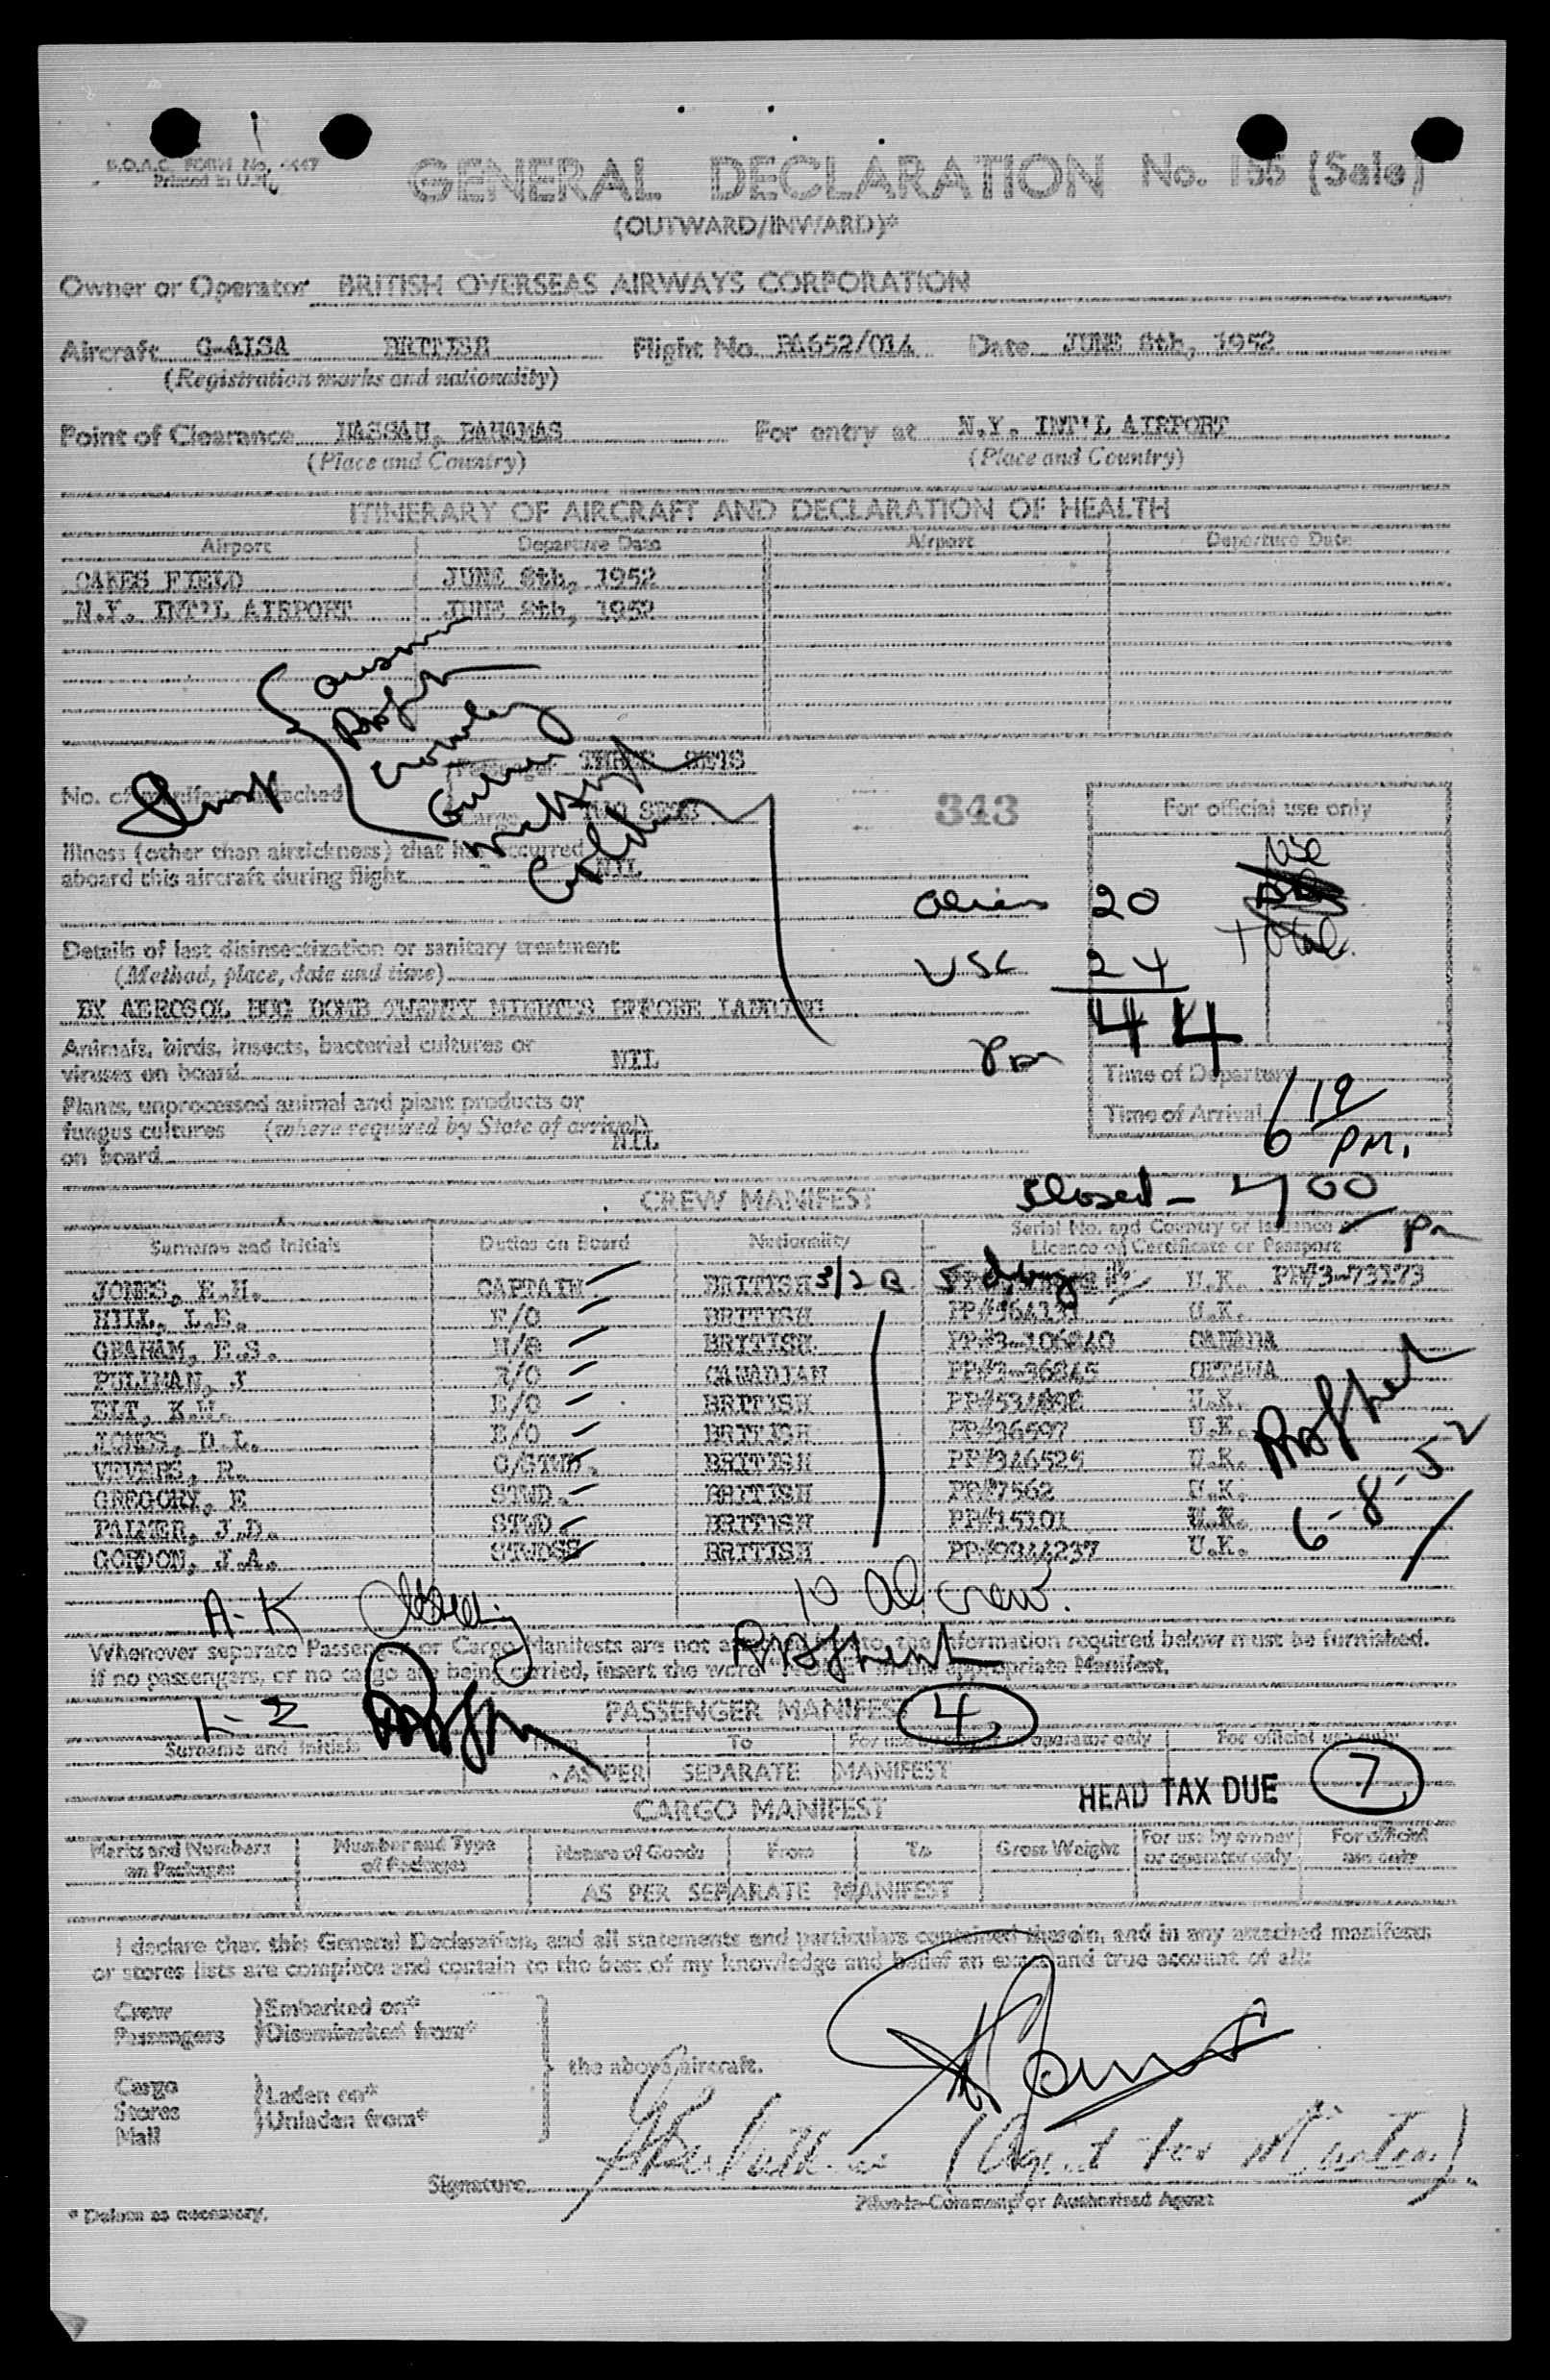 B.O.A.C. FORM No.
Printed in U.K.
GENERAL DECLARATION No. 155 (Sale)
(OUTWARD/INWARD)*
Owner or Operator BRITISH OVERSEAS AIRWAYS CORPORATION
Aircraft G-AISA BRITISH Flight No. BA652/014 Date JUNE 8th, 1952
(Registration marks and nationality)
Point of Clearance NASSAU, BAHAMAS For entry at N.Y. INT'L AIRPORT
(Place and Country) (Place and Country)
ITINERARY OF AIRCRAFT AND DECLARATION OF HEALTH
Airport Departure Date Airport Departure Date
OAKES FIELD JUNE 8th, 1952
N.Y. INT'L AIRPORT JUNE 8th, 1952
Passenger THREE SETS
No. of manifests attached
Cargo TWO SETS
343
For official use only
Illness (other than airsickness) that has occurred
aboard this aircraft during flight NIL
Aliens 20
Total
Details of last disinsectization or sanitary treatment
(Method, place, date and time)
USC 24
44
BY AEROSOL BUG BOMB TWENTY MINUTES BEFORE LANDING
Animals, birds, insects, bacterial cultures or
viruses on board NIL
Time of Departure
Plants, unprocessed animal and plant products or
fungus cultures (where required by State of arrival)
on board NIL
Time of Arrival 6 19 PM.
Closed - 700 Pm
CREW MANIFEST
Surname and Initials Duties on Board Nationality Serial No. and Country of Issuance of
Licence or Certificate or Passport
JONES, E.H. CAPTAIN BRITISH U.K. PP#3-73173
HILL, L.E. F/O BRITISH U.K.
GRAHAM, E.S. N/O BRITISH PP#3-106840 CANADA
PULLMAN, J R/O CANADIAN PP#3-36845 OTTAWA
ELT, K.W. E/O BRITISH U.K.
JONES, D.L. E/O BRITISH PP#36597 U.K.
VEVERS, R. C/STWD. BRITISH PP#346525 U.K.
GREGORY, E STWD. BRITISH PP#7562 U.K.
PALMER, J.D. STWD. BRITISH PP#15101 U.K.
GORDON, J.A. STWDSS BRITISH PP#9944237 U.K.
6-8-52
A-K
10 Al crew.
Whenever separate Passenger or Cargo Manifests are not attached hereto, the information required below must be furnished.
If no passengers, or no cargo are being carried, insert the word "NONE" in the appropriate Manifest.
L-Z
PASSENGER MANIFEST 4
Surname and Initials From To For use by owner or operator only For official use only
AS PER SEPARATE MANIFEST
HEAD TAX DUE 7
CARGO MANIFEST
Marks and Numbers on Packages Number and Type of Packages Nature of Goods From To Gross Weight For use by owner or operator only For official use only
AS PER SEPARATE MANIFEST
I declare that this General Declaration, and all statements and particulars contained therein, and in any attached manifests
or stores lists are complete and contain to the best of my knowledge and belief an exact and true account of all:
Crew } Embarked on*
Passengers } Disembarked from*
the above aircraft.
Cargo } Laden on*
Stores } Unladen from*
Mail
(Agent for Master).
Signature
Pilot-in-Command or Authorised Agent
* Delete as necessary.